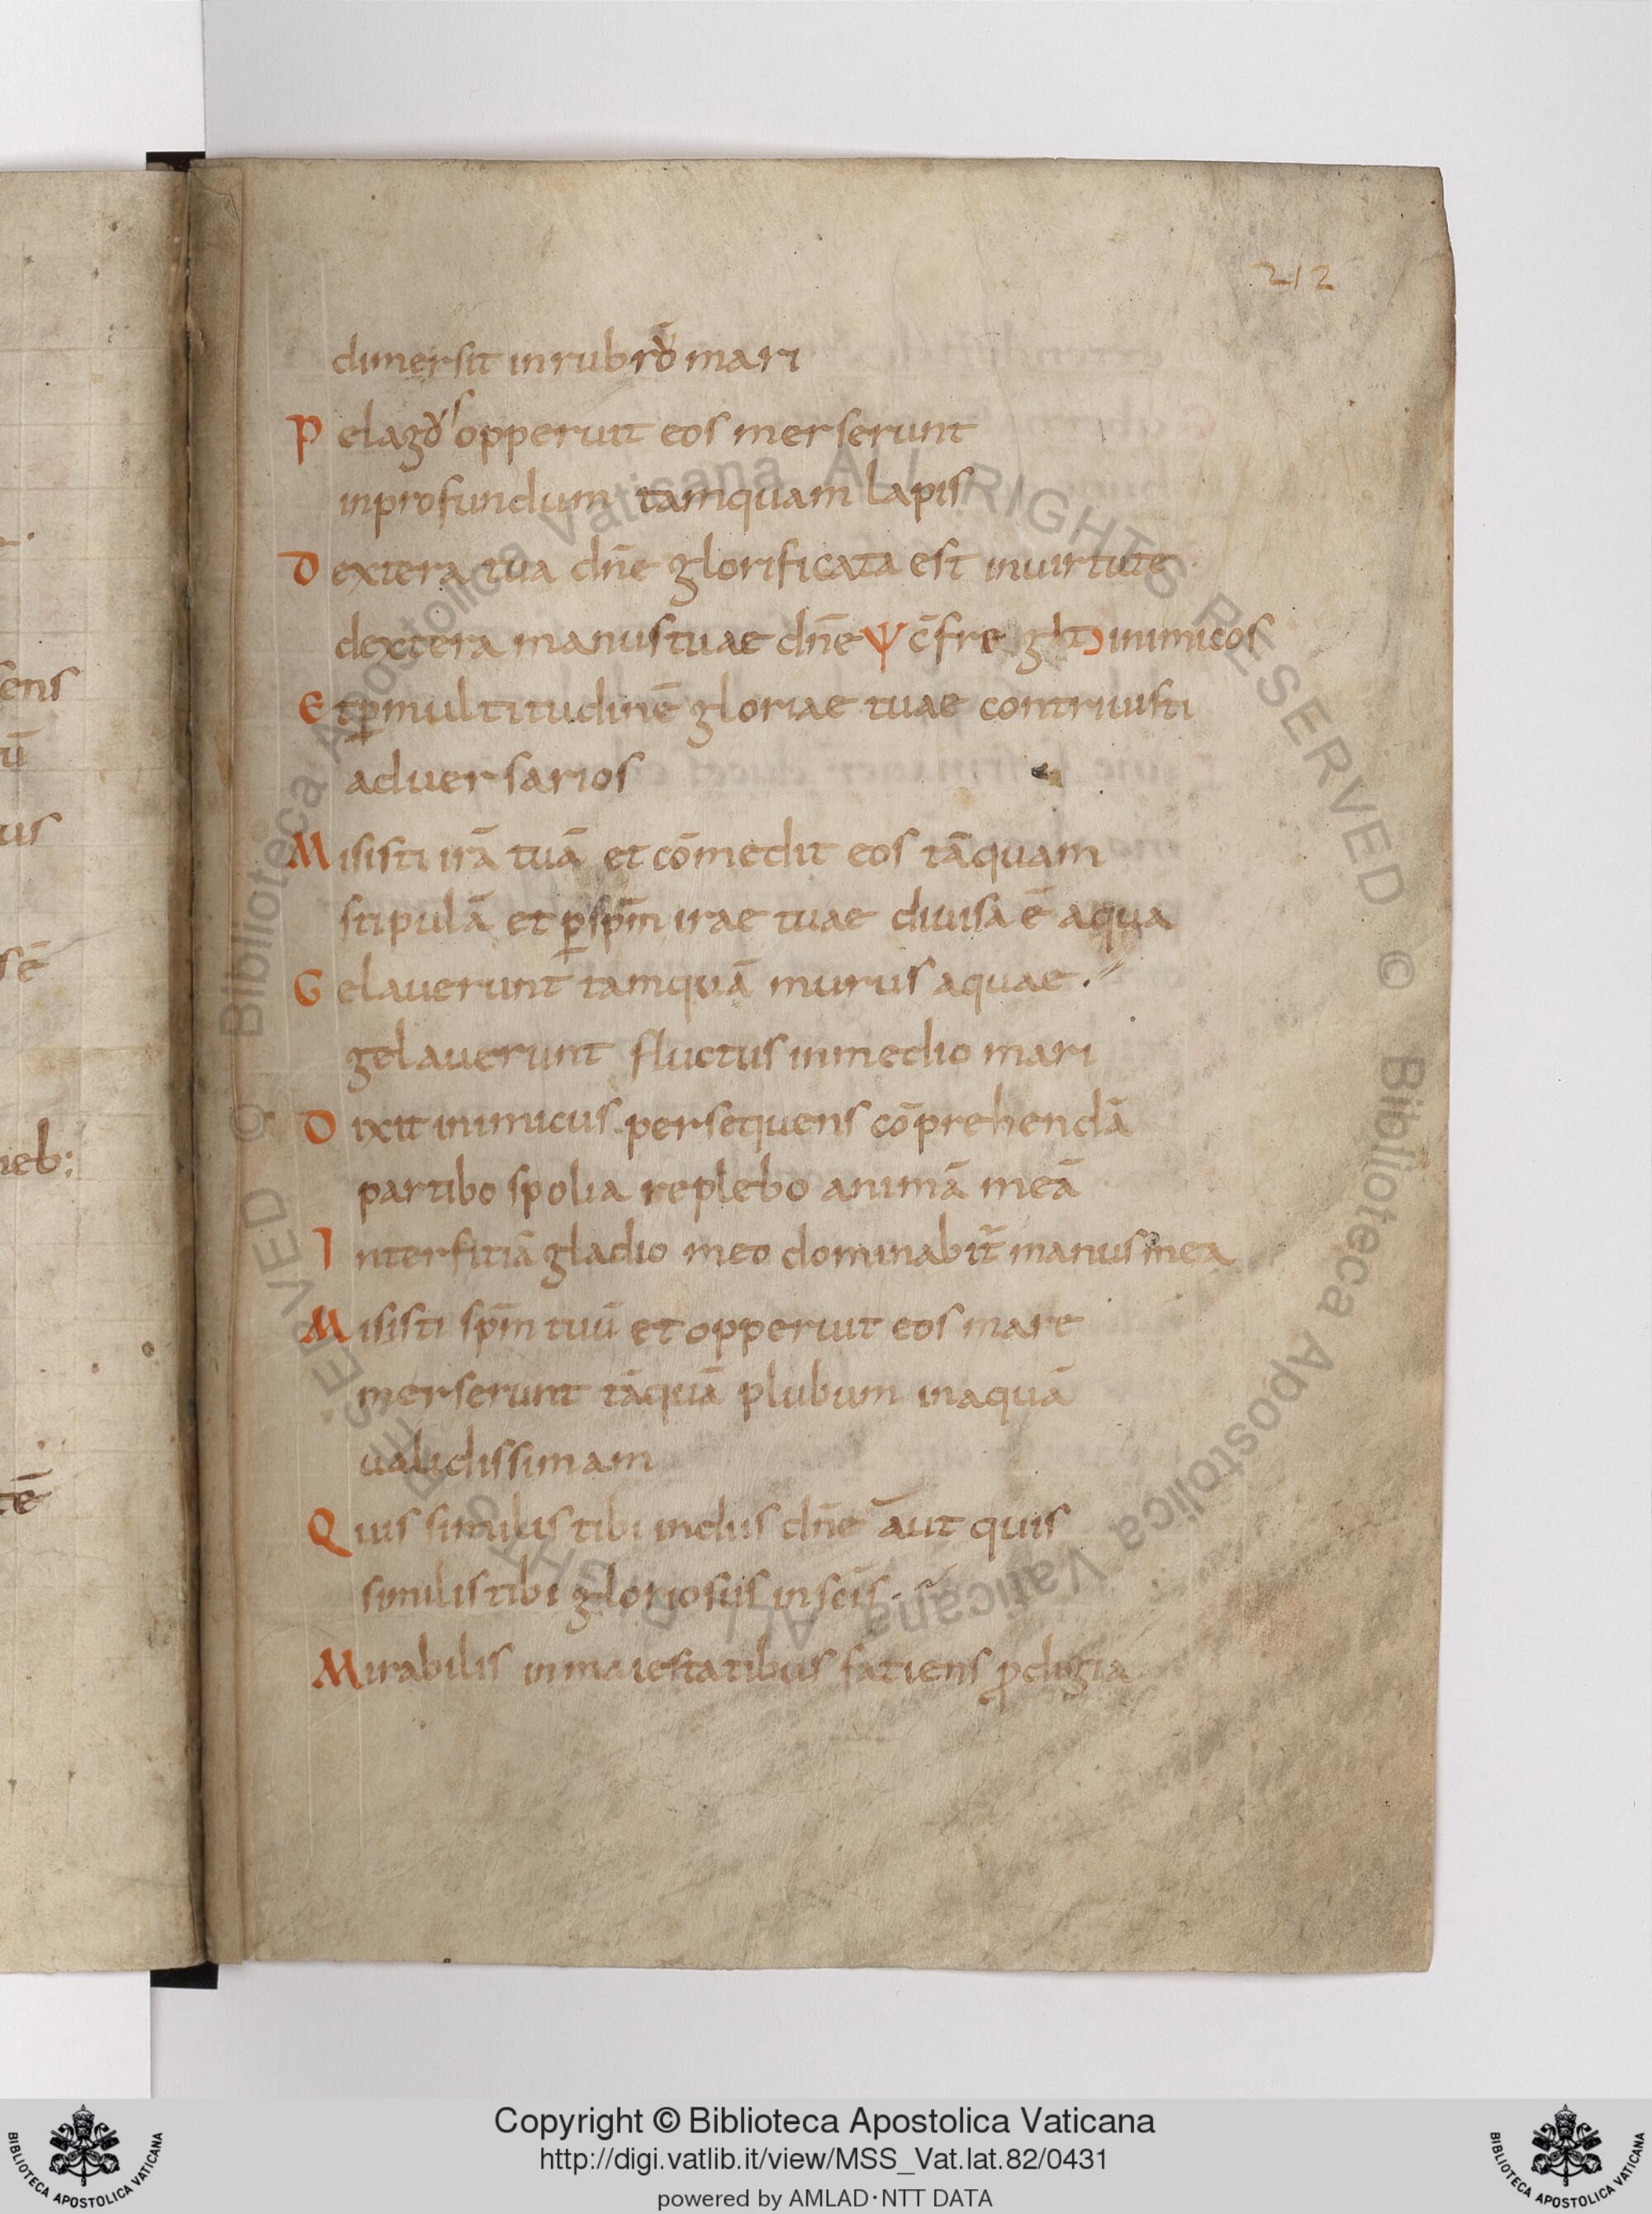 212
dimersit inrubrō mari
Pelagus opperuit eos merserunt
inprofundum tamquam lapis
Dextera tua dn̄e glorificata est inuirtute
dextera manustuae dn̄e Ψ c̄fre inimicos
Et p̱multitudinē gloriae tuae contriuisti
aduersarios
Misisti irā tuā et cōmedit eos tāquam
stipulā et p̱ sp̄m irae tuae diuisa ē aqua
Gelauerunt tamquā murus aquae.
gelauerunt fluctus inmedio mari
Dixit inimicus persequens cōprehendā
partibo spolia replebo animā meā
Interfitiā gladio meo dominabit̄ manusmea
Misisti sp̄m tuū et opperiut eos mare
merserunt tāquā plubum inaquā
ualidissimam
Quis similis tibi indus dn̄e āut quis
similis tibi gloriosus in sc̄is.
Mirabilis inmaiestatibus fatiens ꝓdigia
ens
ū
us
sē
ieb:
tē
© Biblioteca Apostolica Vaticana ALL RIGHTS RESERVED © Biblioteca Apostolica Vaticana ALL RIGHTS RESERVED
Copyright © Biblioteca Apostolica Vaticana
http://digi.vatlib.it/view/MSS_Vat.lat.82/0431
powered by AMLAD·NTT DATA
BIBLIOTECA APOSTOLICA VATICANA
BIBLIOTECA APOSTOLICA VATICANA